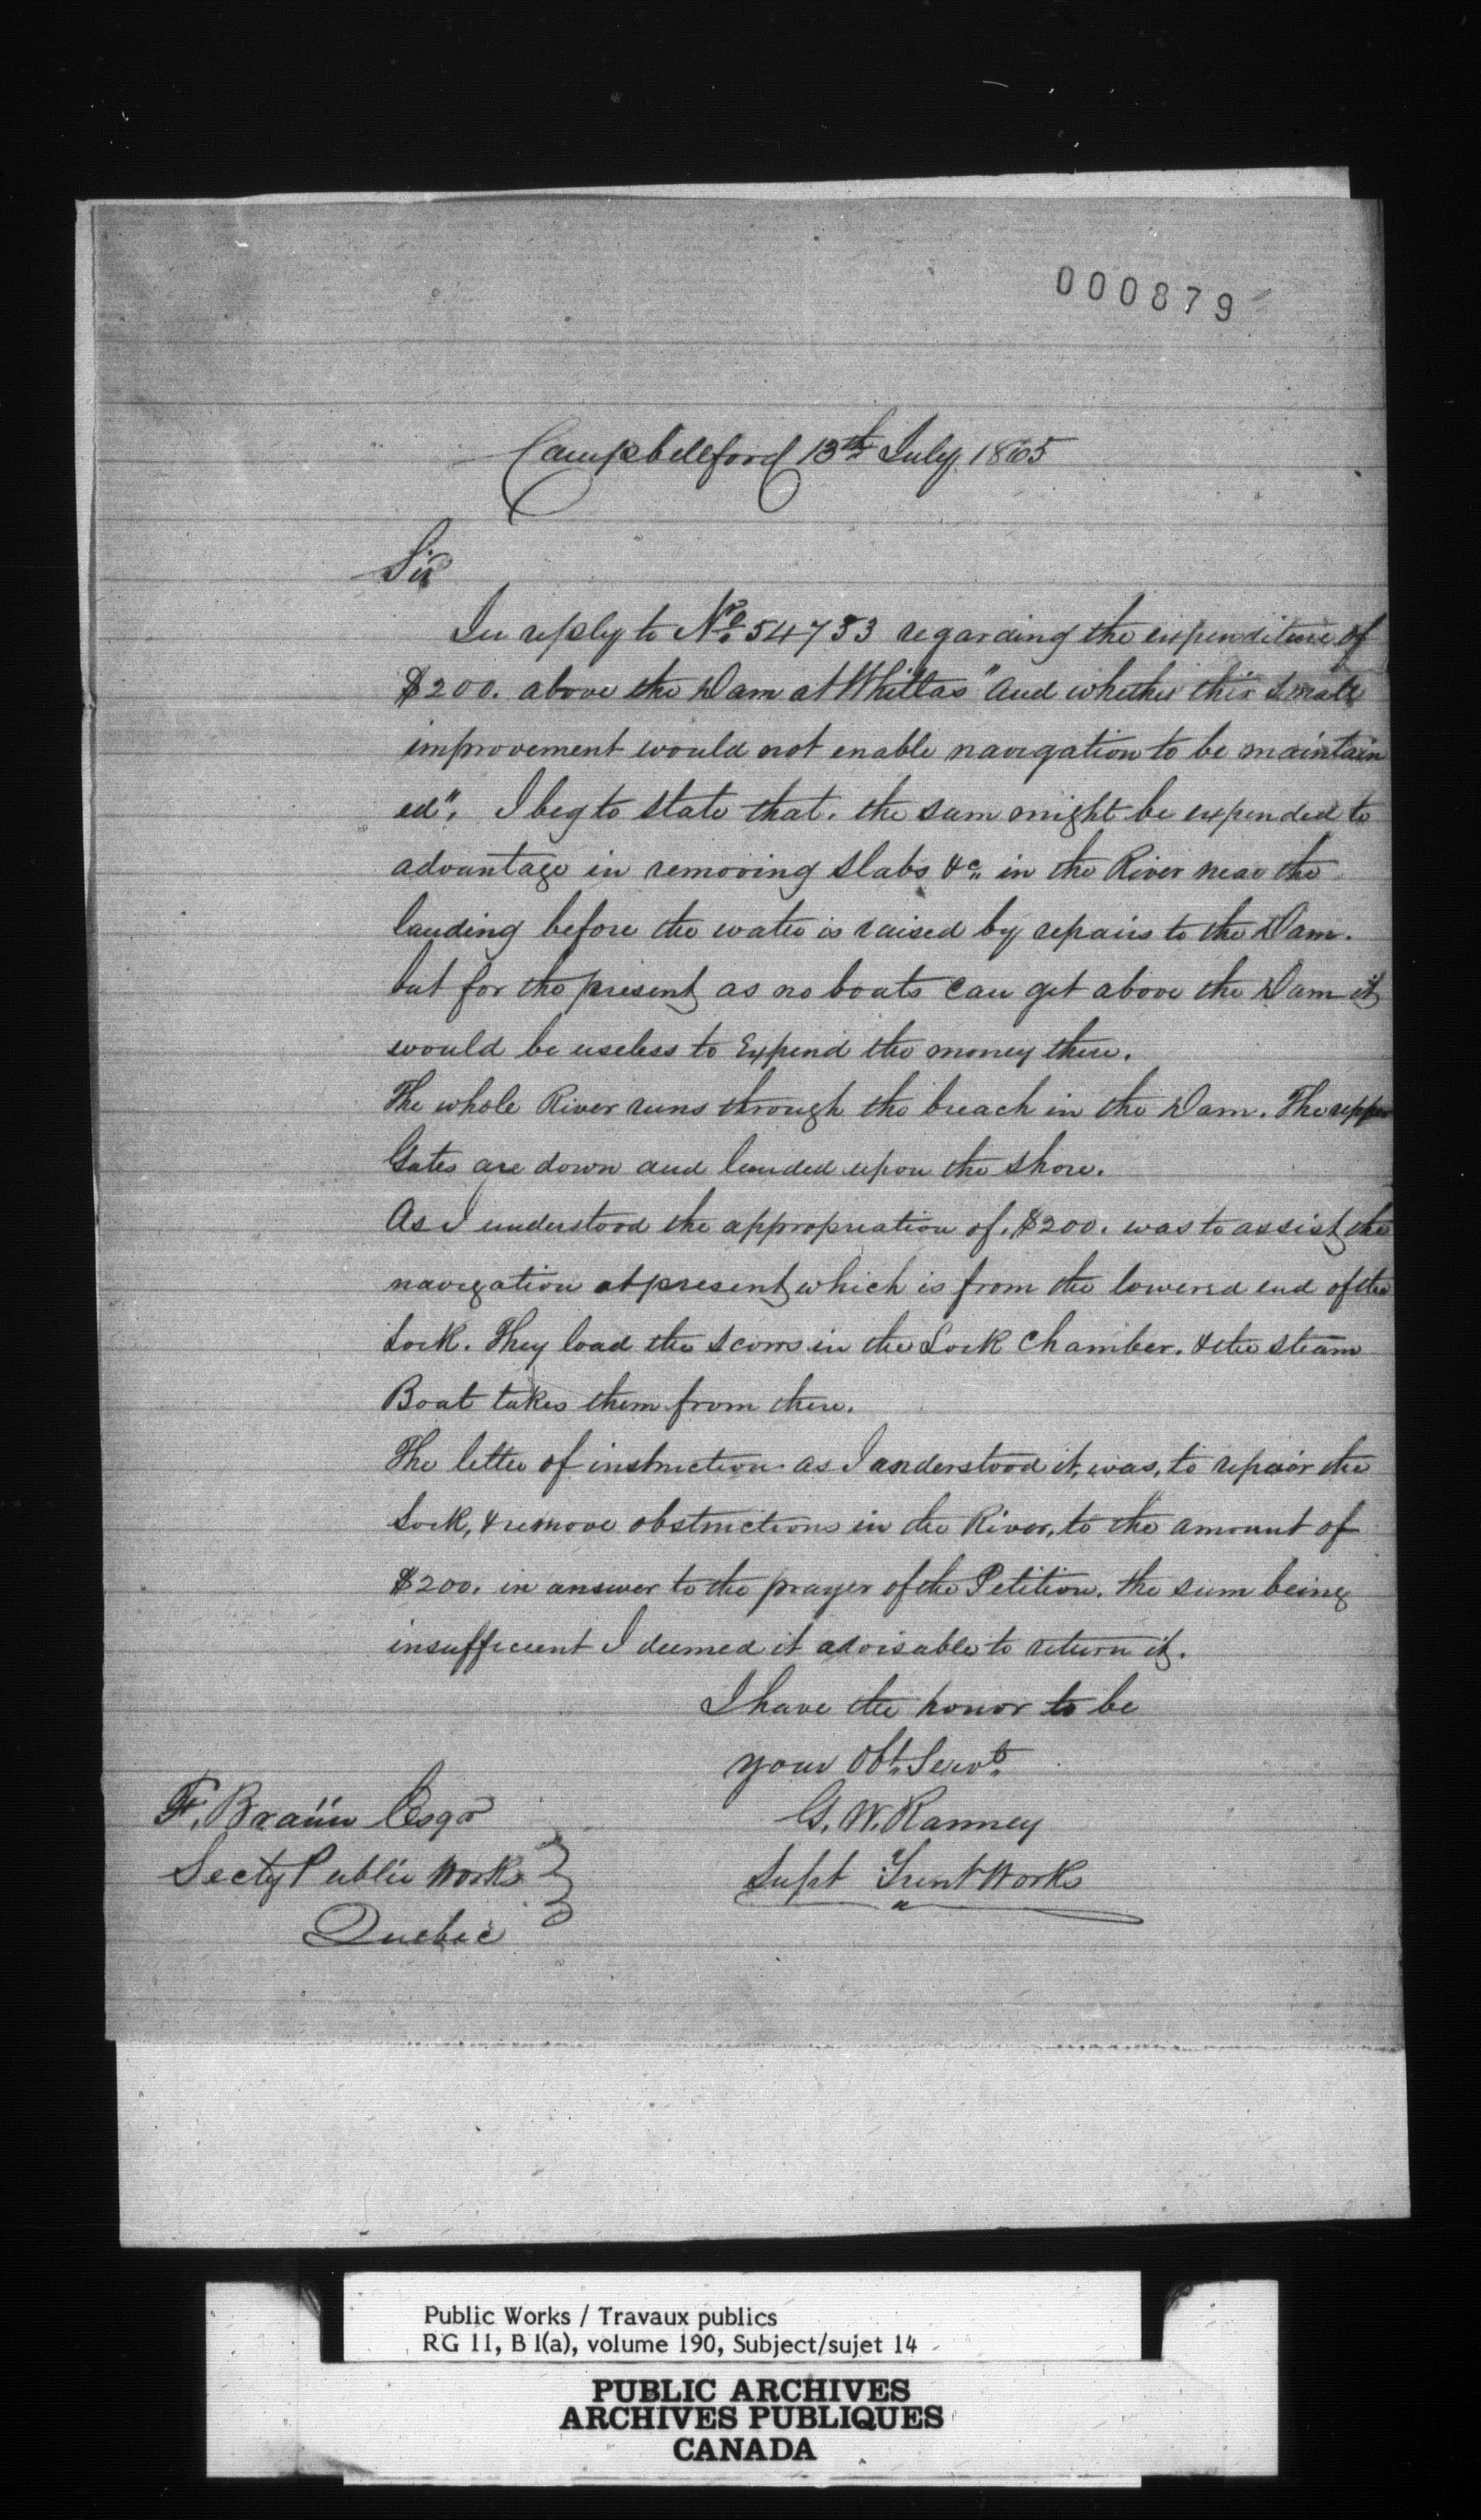 000879
Campbellford 13th July 1865
Sir
In reply to No. 54733 regarding the expenditure of
$200. above the Dam at Whitlas "and whether this small
improvement would not enable navigation to be maintain
ed". I beg to state that. the sum might be expended to
advantage in removing slabs &c. in the River near the
landing before the water is raised by repairs to the Dam.
but for the present as no boats can get above the Dam it
would be useless to Expend the money there.
The whole River runs through the breach in the Dam. The upper
Gates are down and landed upon the shore.
As I understood the appropriation of. $200. was to assist the
navigation at present which is from the lowered end of the
Lock. They load the scows in the Lock Chamber. & the steam
Boat takes them from there.
The letter of instruction as I understood it, was, to repair the
Lock, & remove obstructions in the River, to the amount of
$200. in answer to the prayer of the Petition. the sum being
insufficient I deemed it advisable to return it.
I have the honor to be
your Obt. Servt.
G. W. Ranney
Supt Trent Works
F. Braün Esqr
Secty Public Works
Quebec
Public Works / Travaux publics
RG 11, B 1(a), volume 190, Subject/sujet 14
PUBLIC ARCHIVES
ARCHIVES PUBLIQUES
CANADA